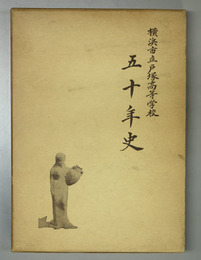 横浜市立戸塚高等学校
五十年史